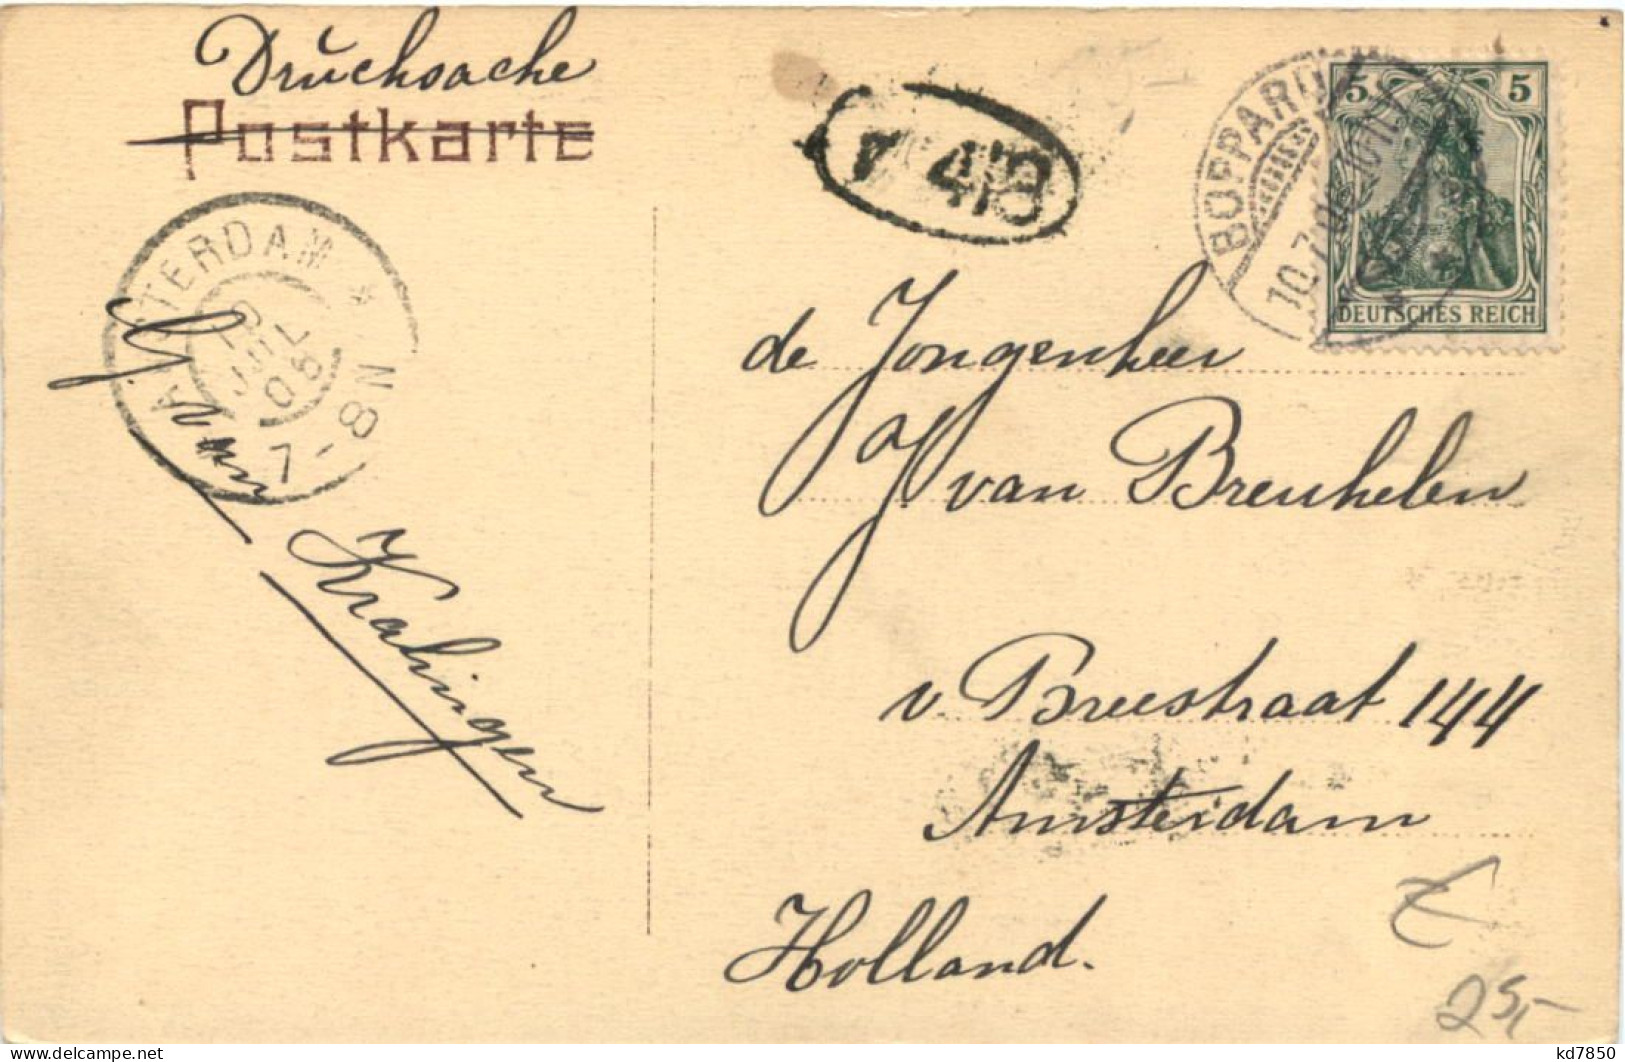 Drucksache
Postkarte
413
BOPPARD
10.7.06.10-11
5 5
DEUTSCHES REICH
AMSTERDAM *
JUL
06
7-8N
de Jongenheer
van Breukelen
v Breestraat 144
Amsterdam
Holland.
G. van
Kralingen
25,-
kd7850